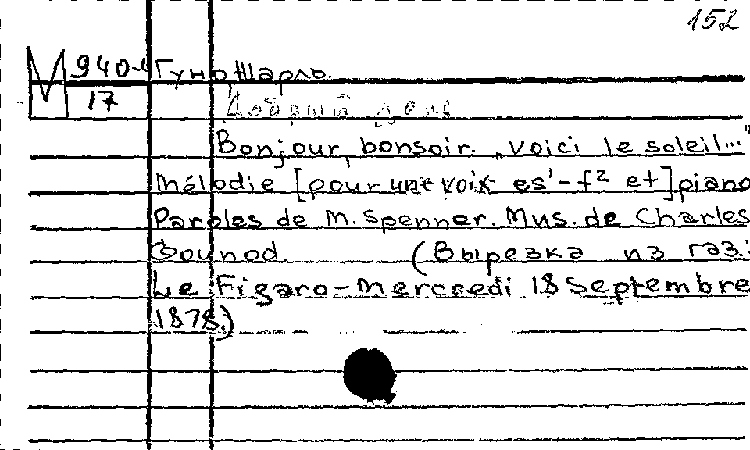 152
М 940-4 Гуно Шарль
17 Добрый день
Bonjour, bonsoir. „Voici le soleil..."
Mélodie [pour une voix es'-f² et] piano
Paroles de M. Spenner. Mus. de Charles
Gounod. (Вырезка из газ:
Le Figaro-Mercredi 18 Septembre
1878.)